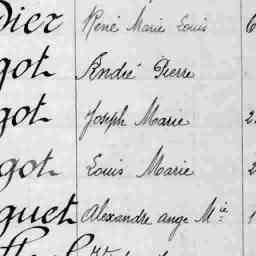 Dier René Marie Louis 6
got André Pierre
got Joseph Marie 2
got Louis Marie 2
guet Alexandre ange Mie 1